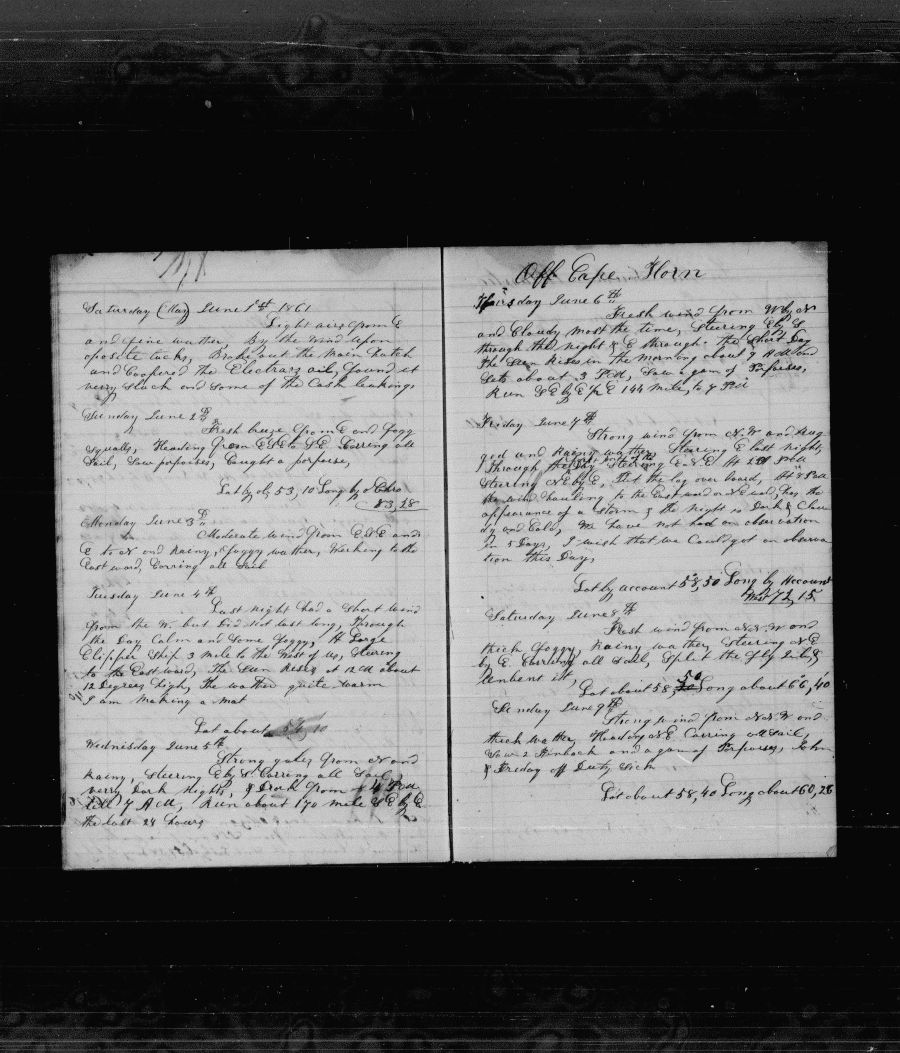 Saturday (May) June 1st 1861
Light airs from E
and fine wather, By the wind upon
oposite tacks, Broke out the Main Hatch
and Coopered the Electrars oil, found it
verry slack and some of the Cask leaking,
Sunday June 2th
Fresh breze from E and fogg
squally, Heading from ESE to SE Carring all
Sail, Saw porpoises, Caught a porpoise,
Lat by ob 53,10 Long by Chro
83,28
Monday June 3th
Moderate wind from ESE and
E to N and Rainy, & foggy wather, Working to the
Eastward, Carring all Sail
Tuesday June 4th
Last night had a Short wind
from the W. but Did Not last long, Through
the Day Calm and Some foggy, A Large
Clipper Ship 3 mile to the West of us, Steering
to the Eastward, The Sun Rises at 12 M about
12 Degrees high, The wather quite warm
I am Making a Mat
Lat about 56,10
Wednesday June 5th
Strong gales from N and
Rainy, Steering E by S. Carring all Sail
verry Dark Nights, & Dark from 4 P M
till 7 A M, Run about 170 mile SE by E
the last 24 hours
Off Cape Horn
Thursday June 6th
Fresh wind from W by N
and Cloudy most the time, Steering E by S
through the Night & E through the Short Day
The Sun Rises in the morning about 9 A M and
Sets about 3 P M, Saw a gam of Porpoises,
Run SE by E 1/2 E 144 mile, to 7 P M
Friday June 7th
Strong wind from N. W and Rug
ged and Rainy wather, Stearing E last night,
Through the Day Steering E N E. At 2 P M
Steering N E by E, Put the log over board, At 8 P M
the wind hauling to the Eastward or N E ward, has the
appearance of a Storm & the Night is Dark &
and Cold, We have not had an observation
in 5 Days, I wish that we Could get an observa
tion this Day,
Lat by account 58,50 Long by Account
West 72,15
Saturday June 8th
Fresh wind from N. N. W and
thick foggy, Rainy wather, Steering N E
by E. Carring all Sail, Split the fly Jib, &
Unbent it,
Lat about 58,50 Long about 66,40
Sunday June 9th
Strong wind from N. N. W and
thick wather, Heading N E Carring all Sail,
Saw 2 Finback and a gam of Porpoises, John
& Friday off Duty Sick
Lat about 58,40 Long about 60,28